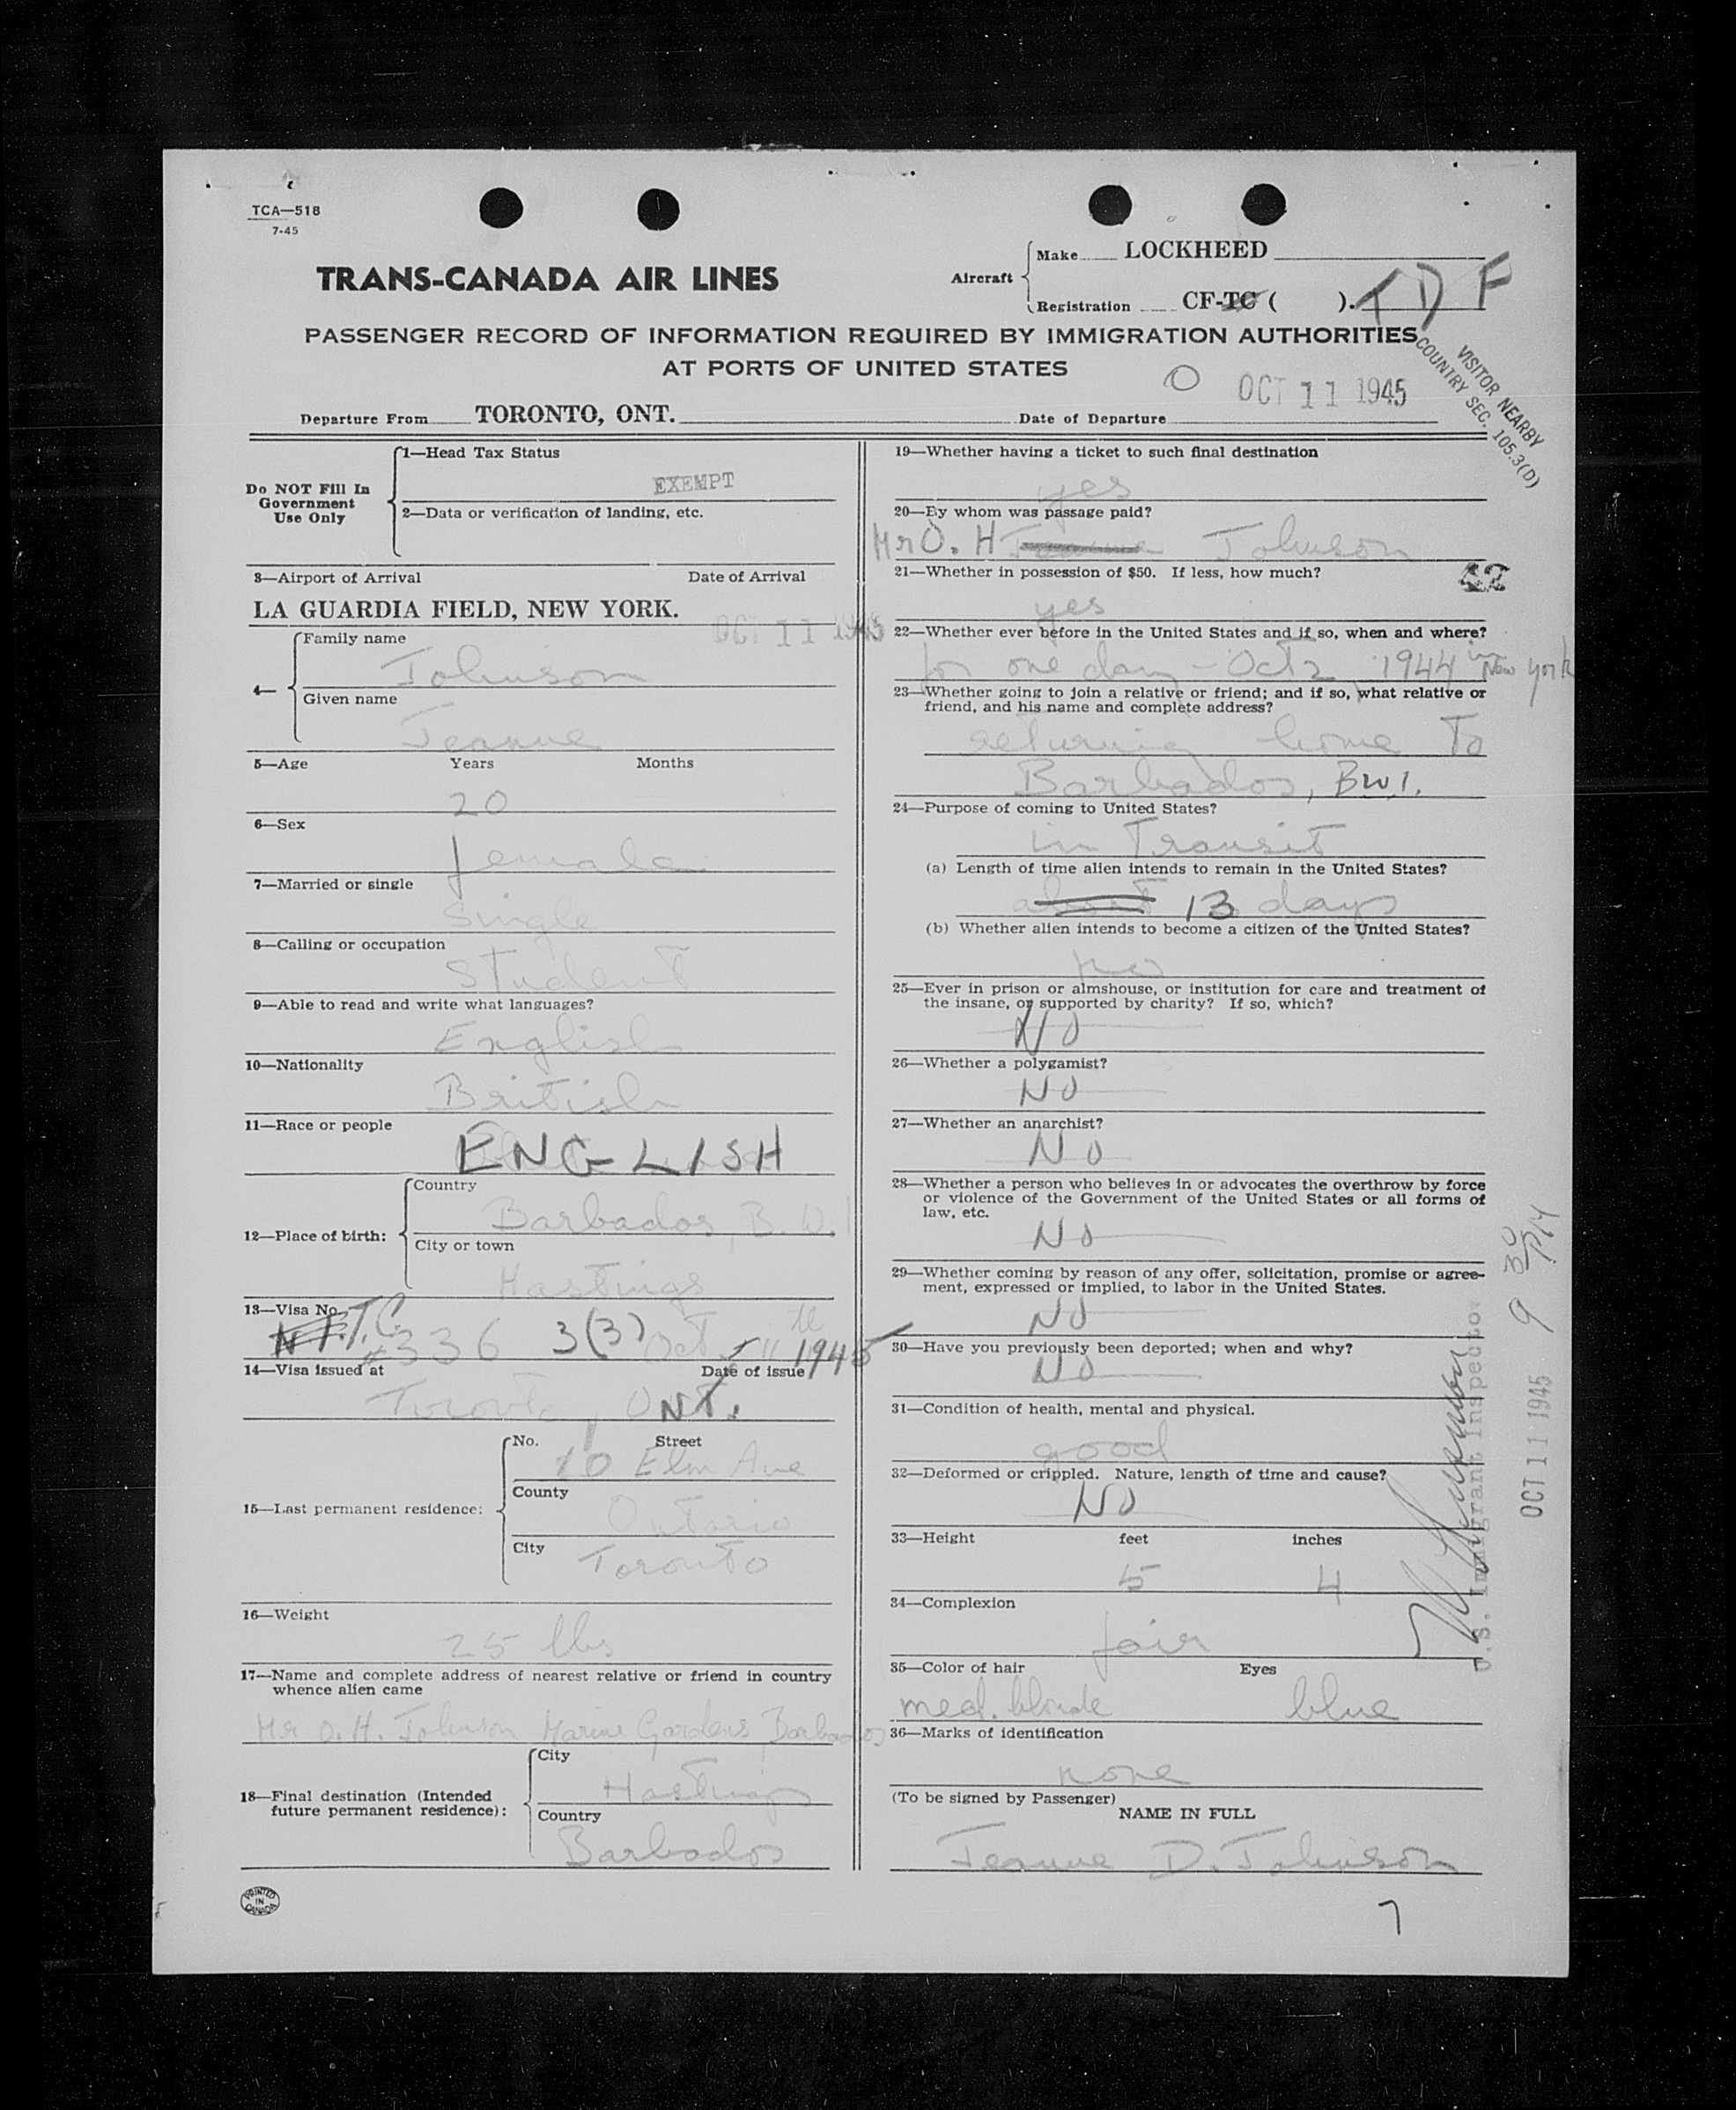 TCA—518
7-45
TRANS-CANADA AIR LINES
Aircraft
Make LOCKHEED
Registration CF-TC ( ). TDF
PASSENGER RECORD OF INFORMATION REQUIRED BY IMMIGRATION AUTHORITIES
AT PORTS OF UNITED STATES
VISITOR NEARBY
COUNTRY SEC. 105.3(D)
O OCT 11 1945
Departure From TORONTO, ONT. Date of Departure
Do NOT Fill In
Government
Use Only
1—Head Tax Status
EXEMPT
2—Data or verification of landing, etc.
3—Airport of Arrival Date of Arrival
LA GUARDIA FIELD, NEW YORK. OCT 11 1945
4—
Family name
Johnson
Given name
Jeanne
5—Age Years Months
20
6—Sex
female
7—Married or single
Single
8—Calling or occupation
Student
9—Able to read and write what languages?
English
10—Nationality
British
11—Race or people
ENGLISH
12—Place of birth:
Country
Barbados, B.W.I
City or town
Hastings
13—Visa No.
T.C. #336 3(3) Oct 11th 1945
14—Visa issued at Date of issue
Toronto, ONT.
15—Last permanent residence:
No. Street
10 Elm Ave
County
Ontario
City
Toronto
16—Weight
25 lbs
17—Name and complete address of nearest relative or friend in country
whence alien came
Mr O. H. Johnson Marine Gardens Barbados
18—Final destination (Intended
future permanent residence):
City
Hastings
Country
Barbados
PRINTED
IN
CANADA
19—Whether having a ticket to such final destination
yes
20—By whom was passage paid?
Mr O. H Jeanne Johnson
21—Whether in possession of $50. If less, how much?
42
yes
22—Whether ever before in the United States and if so, when and where?
for one day - Oct 2 1944 in New York
23—Whether going to join a relative or friend; and if so, what relative or
friend, and his name and complete address?
returning home To
Barbados, BW.I.
24—Purpose of coming to United States?
in Transit
(a) Length of time alien intends to remain in the United States?
about 13 days
(b) Whether alien intends to become a citizen of the United States?
no
25—Ever in prison or almshouse, or institution for care and treatment of
the insane, or supported by charity? If so, which?
NO
26—Whether a polygamist?
NO
27—Whether an anarchist?
NO
28—Whether a person who believes in or advocates the overthrow by force
or violence of the Government of the United States or all forms of
law, etc.
NO
29—Whether coming by reason of any offer, solicitation, promise or agree-
ment, expressed or implied, to labor in the United States.
NO
30—Have you previously been deported; when and why?
NO
31—Condition of health, mental and physical.
good
32—Deformed or crippled. Nature, length of time and cause?
NO
33—Height feet inches
5 4
34—Complexion
fair
35—Color of hair Eyes
med. blonde blue
36—Marks of identification
none
(To be signed by Passenger)
NAME IN FULL
Jeanne D. Johnson
7
U.S. Immigrant Inspector
OCT 11 1945 9 30 PM